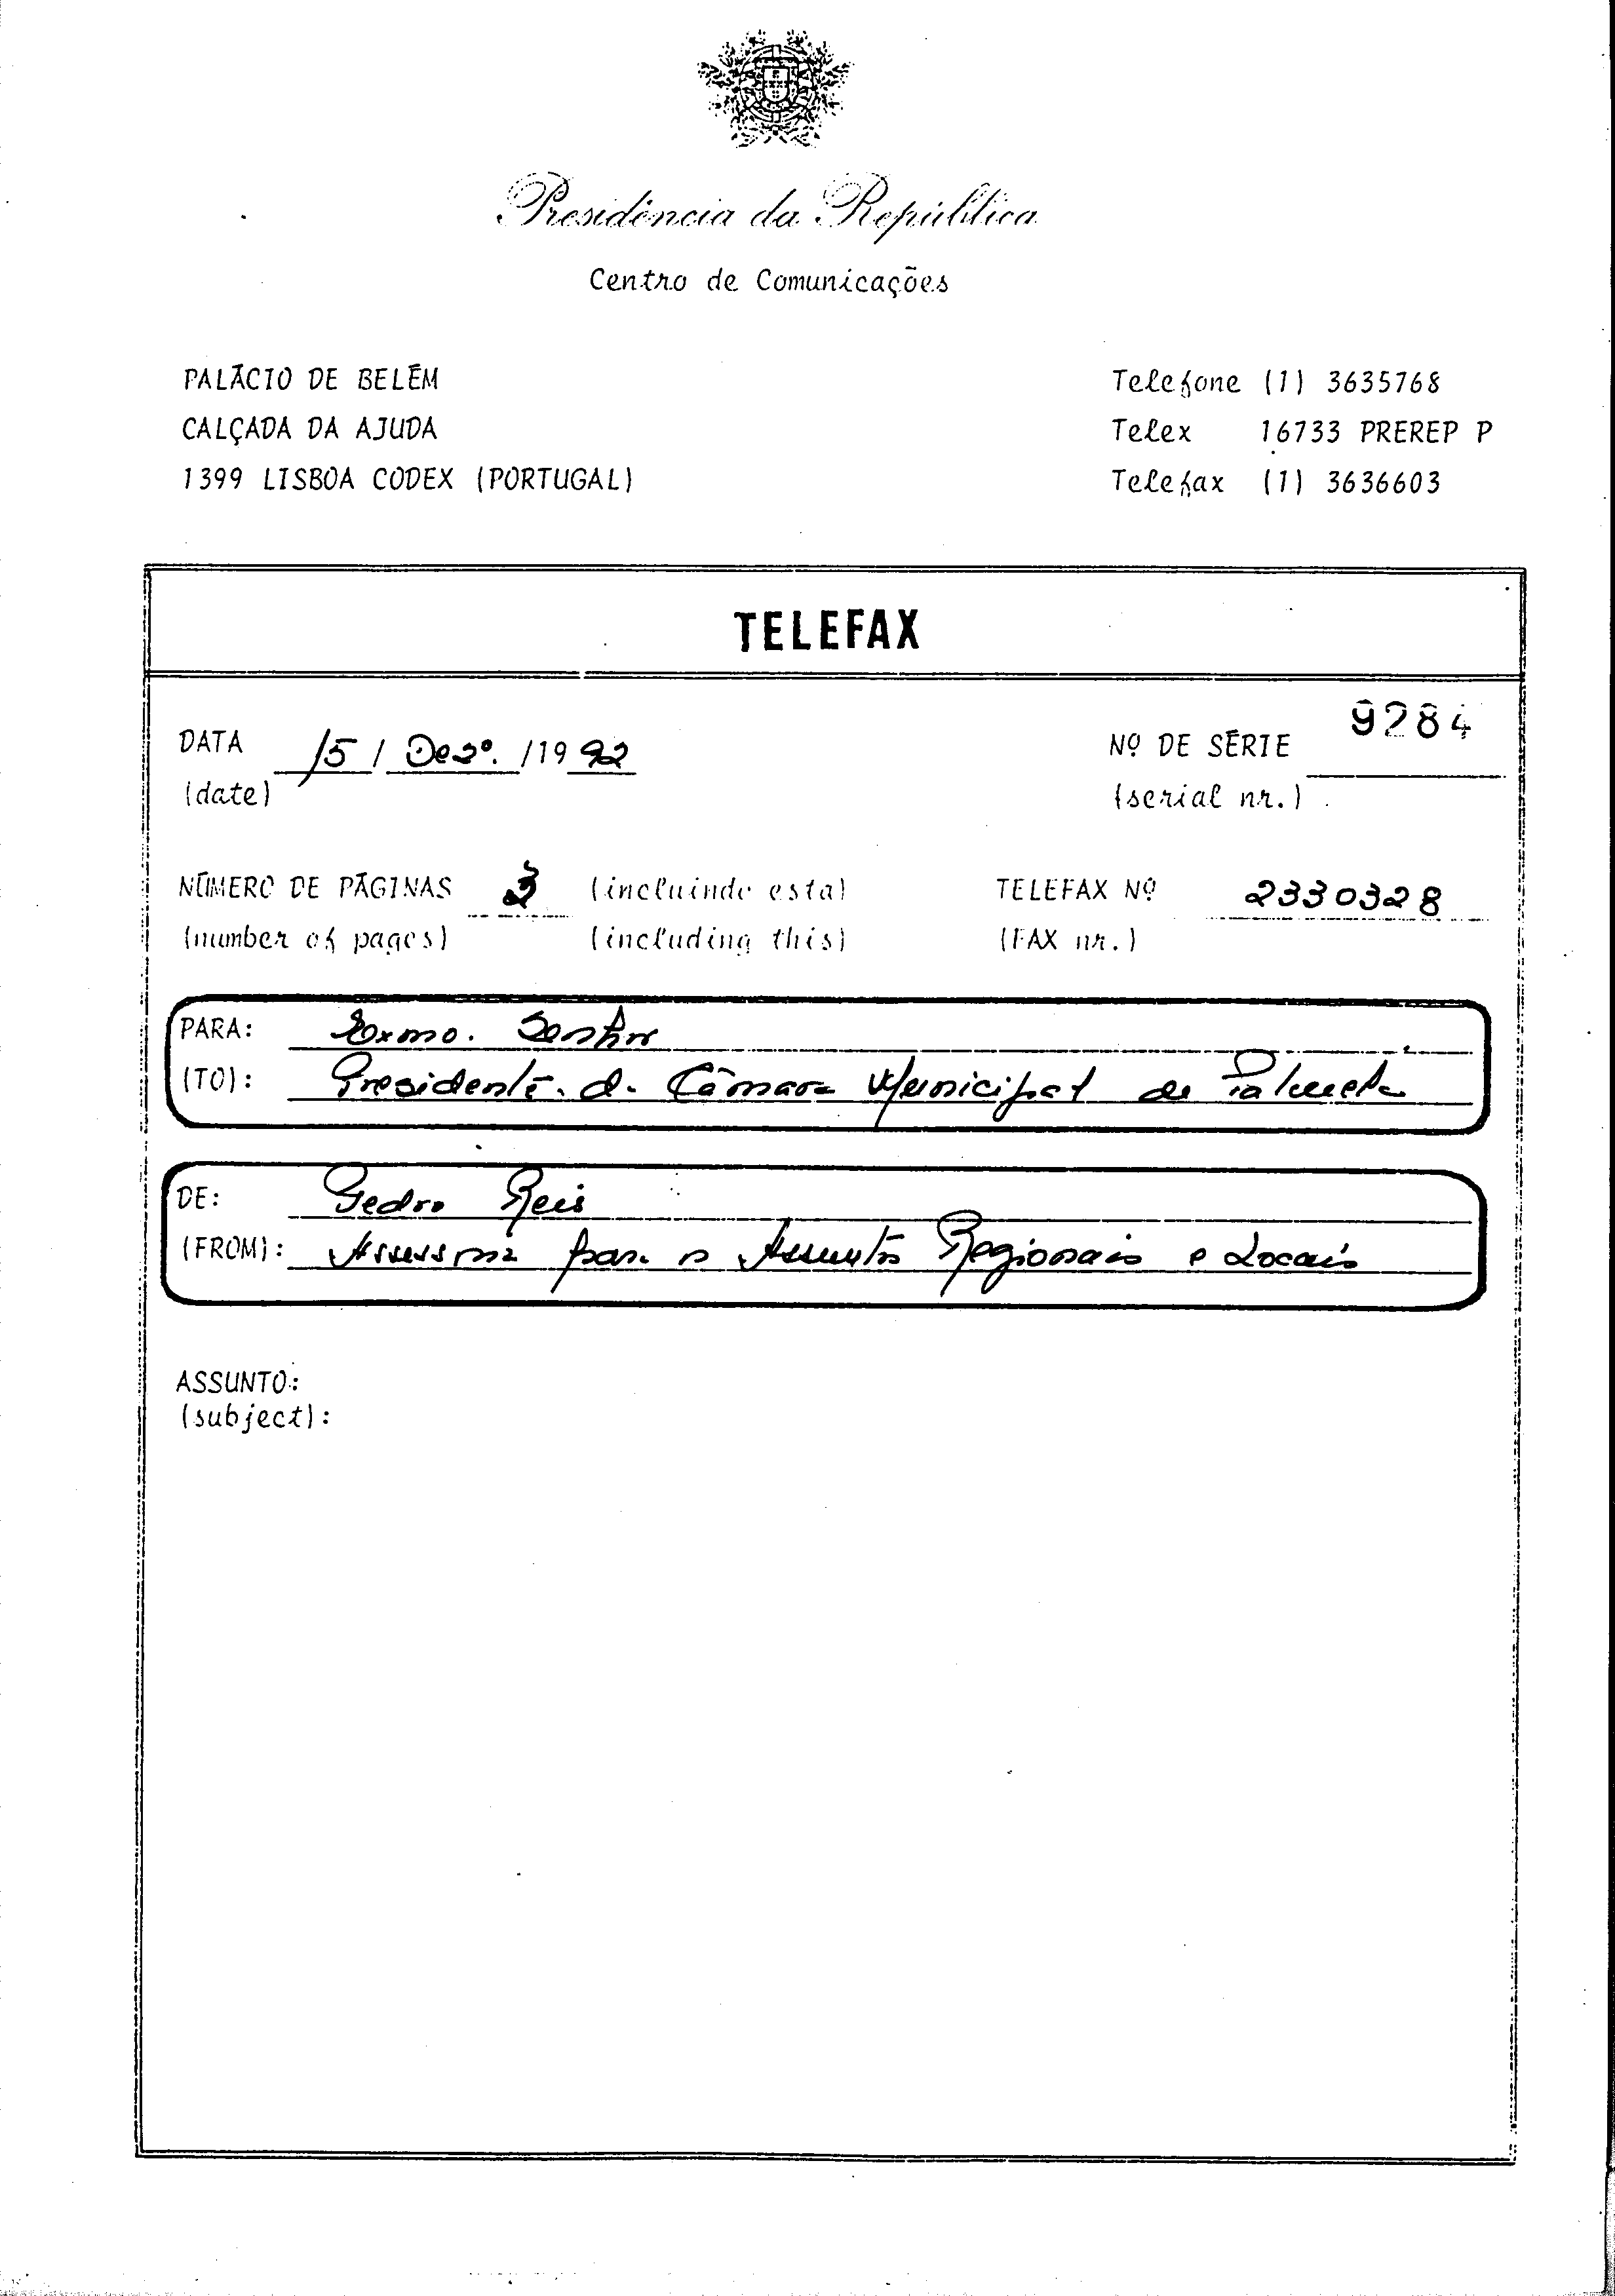 Presidência da República
Centro de Comunicações
PALÁCIO DE BELÉM
CALÇADA DA AJUDA
1399 LISBOA CODEX (PORTUGAL)
Telefone (1) 3635768
Telex 16733 PREREP P
Telefax (1) 3636603
TELEFAX
DATA 15 / Dezº. /19 92
(date)
Nº DE SÉRIE 9284
(serial nr.)
NÚMERO DE PÁGINAS 3 (incluindo esta)
(number of pages) (including this)
TELEFAX Nº 2330328
(FAX nr.)
PARA: Exmo. Senhor
(TO): Presidente da Câmara Municipal de Palmela
DE: Pedro Reis
(FROM): Assessoria para os Assuntos Regionais e Locais
ASSUNTO:
(subject):